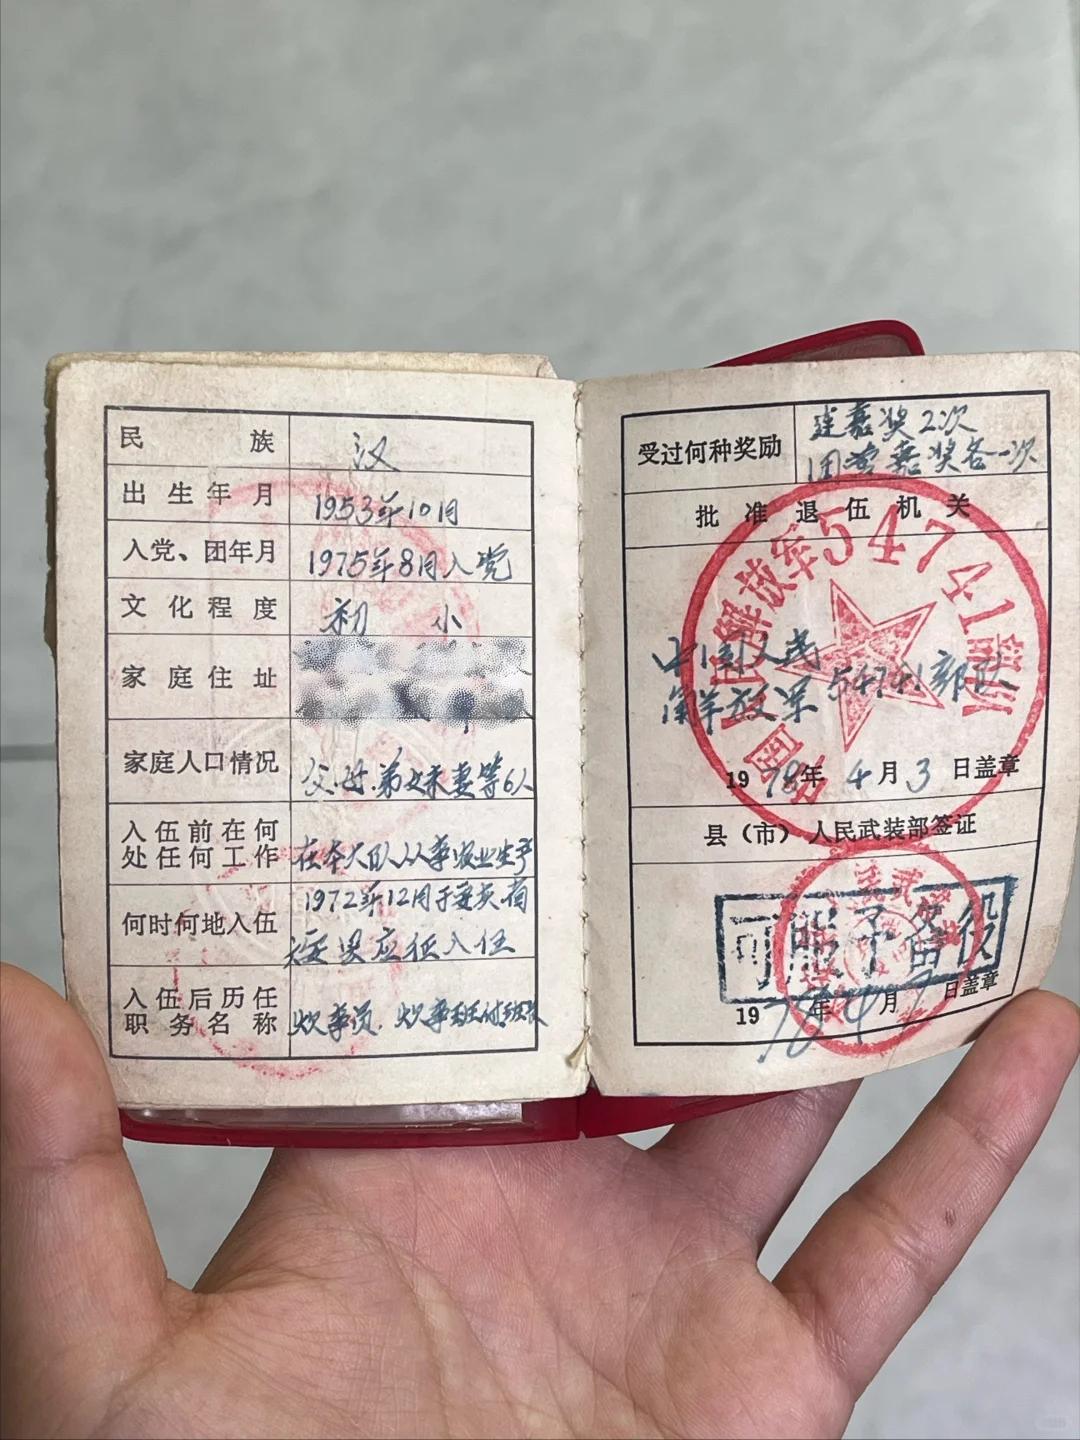 民族 汉
出生年月 1953年10月
入党、团年月 1975年8月入党
文化程度 初小
家庭住址
家庭人口情况 父.母.弟妹妻等6人
入伍前在何
处任何工作 在本大队从事农业生产
何时何地入伍 1972年12月于安英
应征入伍
入伍后历任
职务名称 炊事员.炊事班付班长
受过何种奖励 连嘉奖2次
团营嘉奖各一次
批准退伍机关
中国人民解放军54741部队
中国人民
解放军54741部队
1978年4月3日盖章
县(市)人民武装部签证
可服予备役
1978年4月7日盖章